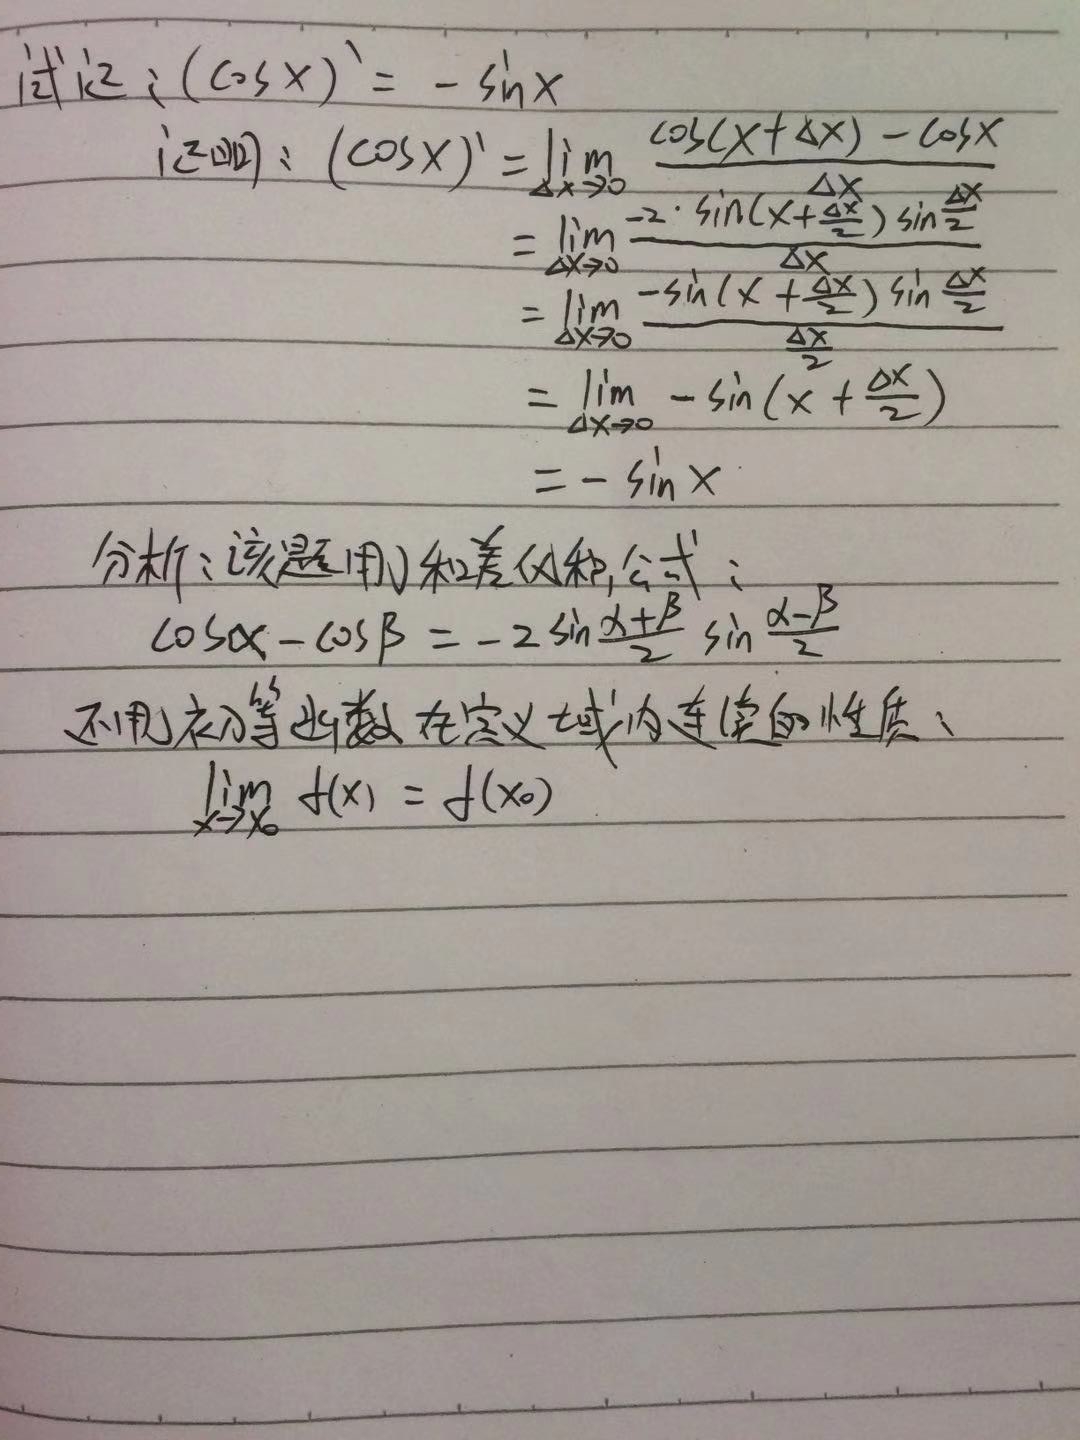 试证：(cosx)' = -sinx
证明：(cosx)' = lim Δx→0 (cos(x+Δx) - cosx)/Δx
= lim Δx→0 (-2·sin(x+Δx/2)sin Δx/2)/Δx
= lim Δx→0 (-sin(x+Δx/2)sin Δx/2)/(Δx/2)
= lim Δx→0 -sin(x+Δx/2)
= -sinx
分析：该题用了和差化积公式：
cosα - cosβ = -2sin (α+β)/2 sin (α-β)/2
还用了初等函数在定义域内连续的性质：
lim x→x₀ f(x) = f(x₀)